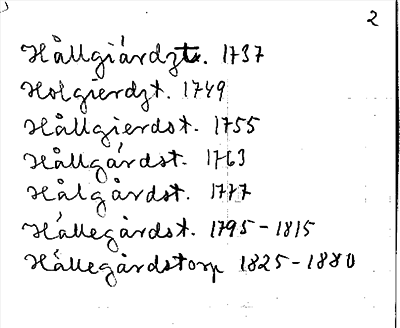 2
Hållgiärdzt. 1737
Holgierdzt. 1749
Hållgierdst. 1755
Hållgårdst. 1763
Hålgårdst. 1777
Hållegårdst. 1795-1815
Hållegårdstorp 1825-1880